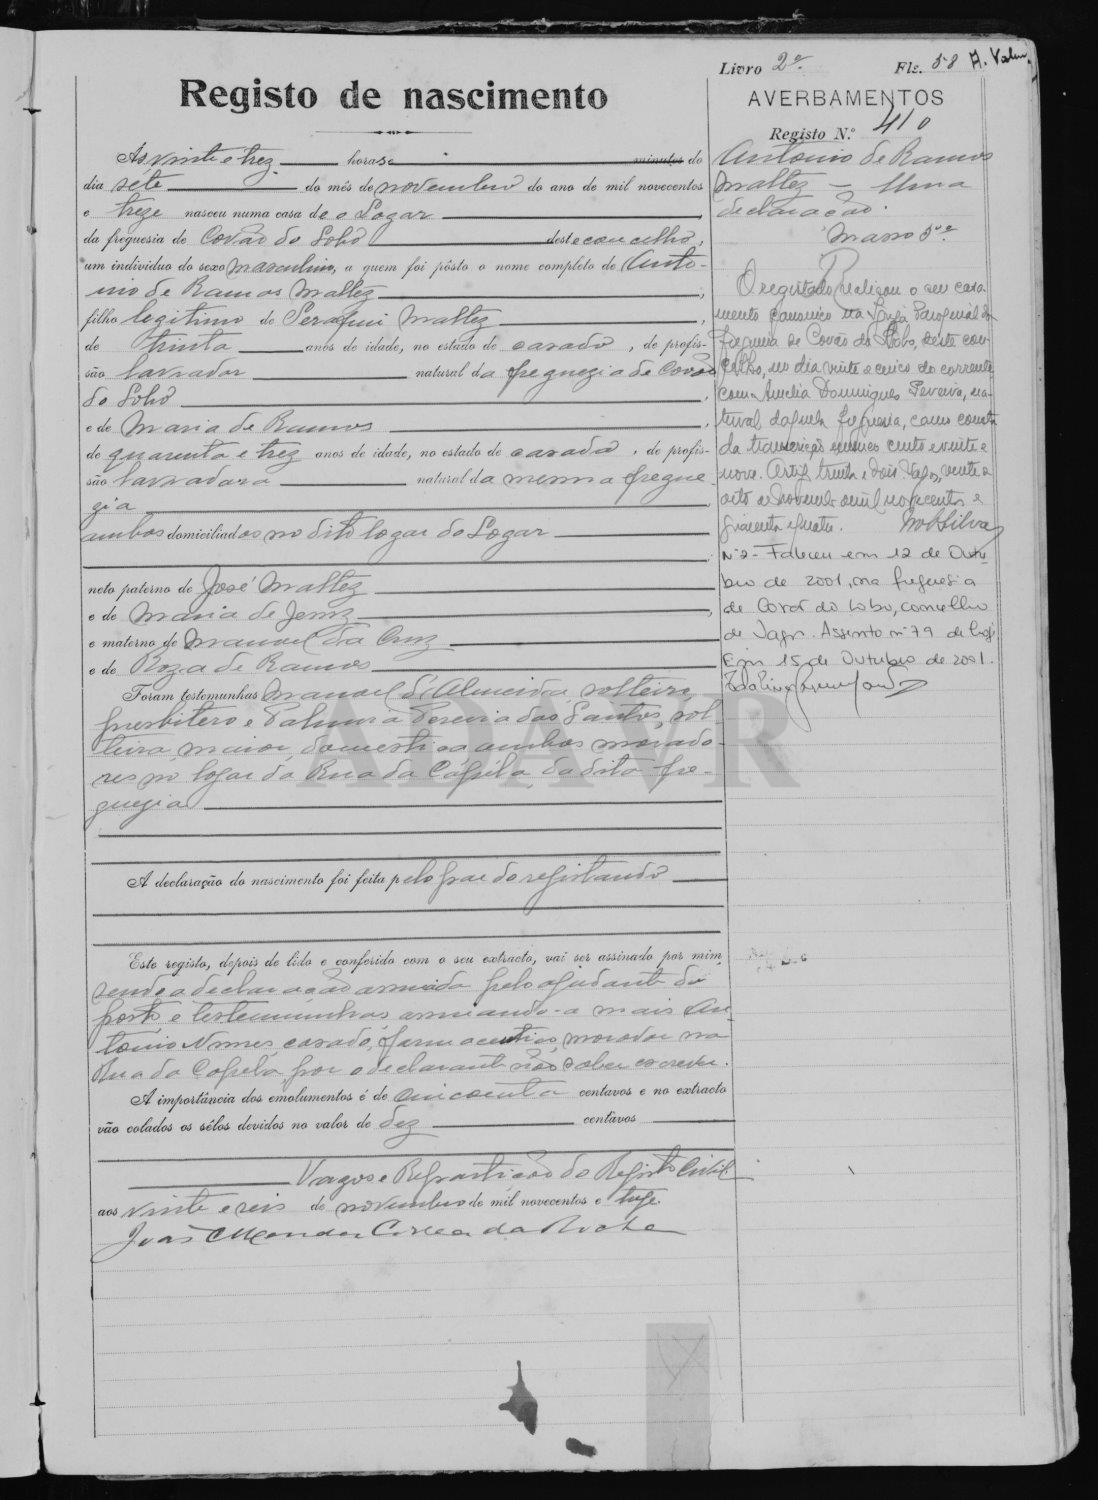 Livro 2º Fls. 58
Registo de nascimento
AVERBAMENTOS
Registo N.º 410
Ás vinte e trez horas e minutos do
dia séte do mês de novembro do ano de mil novecentos
e treze nasceu numa casa de o Logar
da freguesia de Covão do Lobo deste concelho,
um individuo do sexo masculino, a quem foi pôsto o nome completo de Anto-
nio de Ramos Maltez
filho legitimo de Serafim Maltez
de trinta anos de idade, no estado de casado, de profis-
são lavrador natural da freguezia de Covão
do Lobo
e de Maria de Ramos
de quarenta e trez anos de idade, no estado de casada, de profis-
são lavradora natural da mesma fregue
zia
ambos domiciliados no dito logar do Logar
neto paterno de José Maltez
e de Maria de Jesus
e materno de Manoel da Cruz
e de Roza de Ramos
Foram testemunhas Manoel d'Almeida, solteiro,
presbitero e Palmira Pereira dos Santos, sol-
teira, maior, domestica ambos morado-
res no logar da Rua da Capéla, da dita fre-
guezia
A declaração do nascimento foi feita pelo pae do registando
Este registo, depois de lido e conferido com o seu extracto, vai ser assinado por mim,
sendo a declaração assinada pelo ajudante do
posto e testemunhas assinando-a mais An-
tonio Nunes, casado, farmaceutico, morador na
Rua da Capela por o declarante não saber escrever.
A importância dos emolumentos é de cincoenta centavos e no extracto
vão colados os sêlos devidos no valor de dez centavos
Vagos e Repartição do Registo Civil
aos vinte e seis de novembro de mil novecentos e treze.
João Mendes Correa da Rocha
Antonio de Ramos
Maltez – Uma
declaração.
Masso 5º
O registado realizou o seu casa
mento canonico na Igreja Paroquial da
freguesia de Covão do Lobo, deste con-
celho, no dia vinte e cinco do corrente
com Amelia Domingues Pereira, na-
tural daquela freguesia, como consta
da transcrição numero cento e vinte e
nove. Artº trinta e dois. Vagos, vinte e
oito de Novembro de mil novecentos e
quarenta e quatro. MobSilva
Nº 2 - Faleceu em 12 de Outu-
bro de 2001, na freguesia
de Covão do Lobo, concelho
de Vagos. Assento nº 79 de hoje
Em 15 de Outubro de 2001.
ADAVR